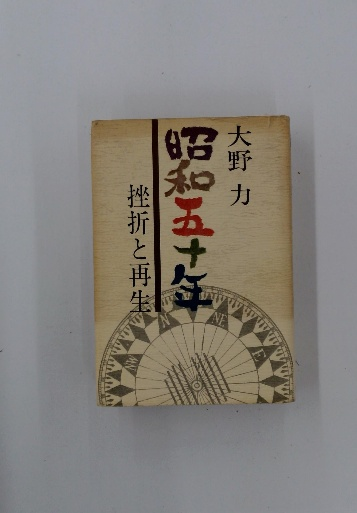 大野 力
昭和五十年
挫折と再生
NW
N
NE
E